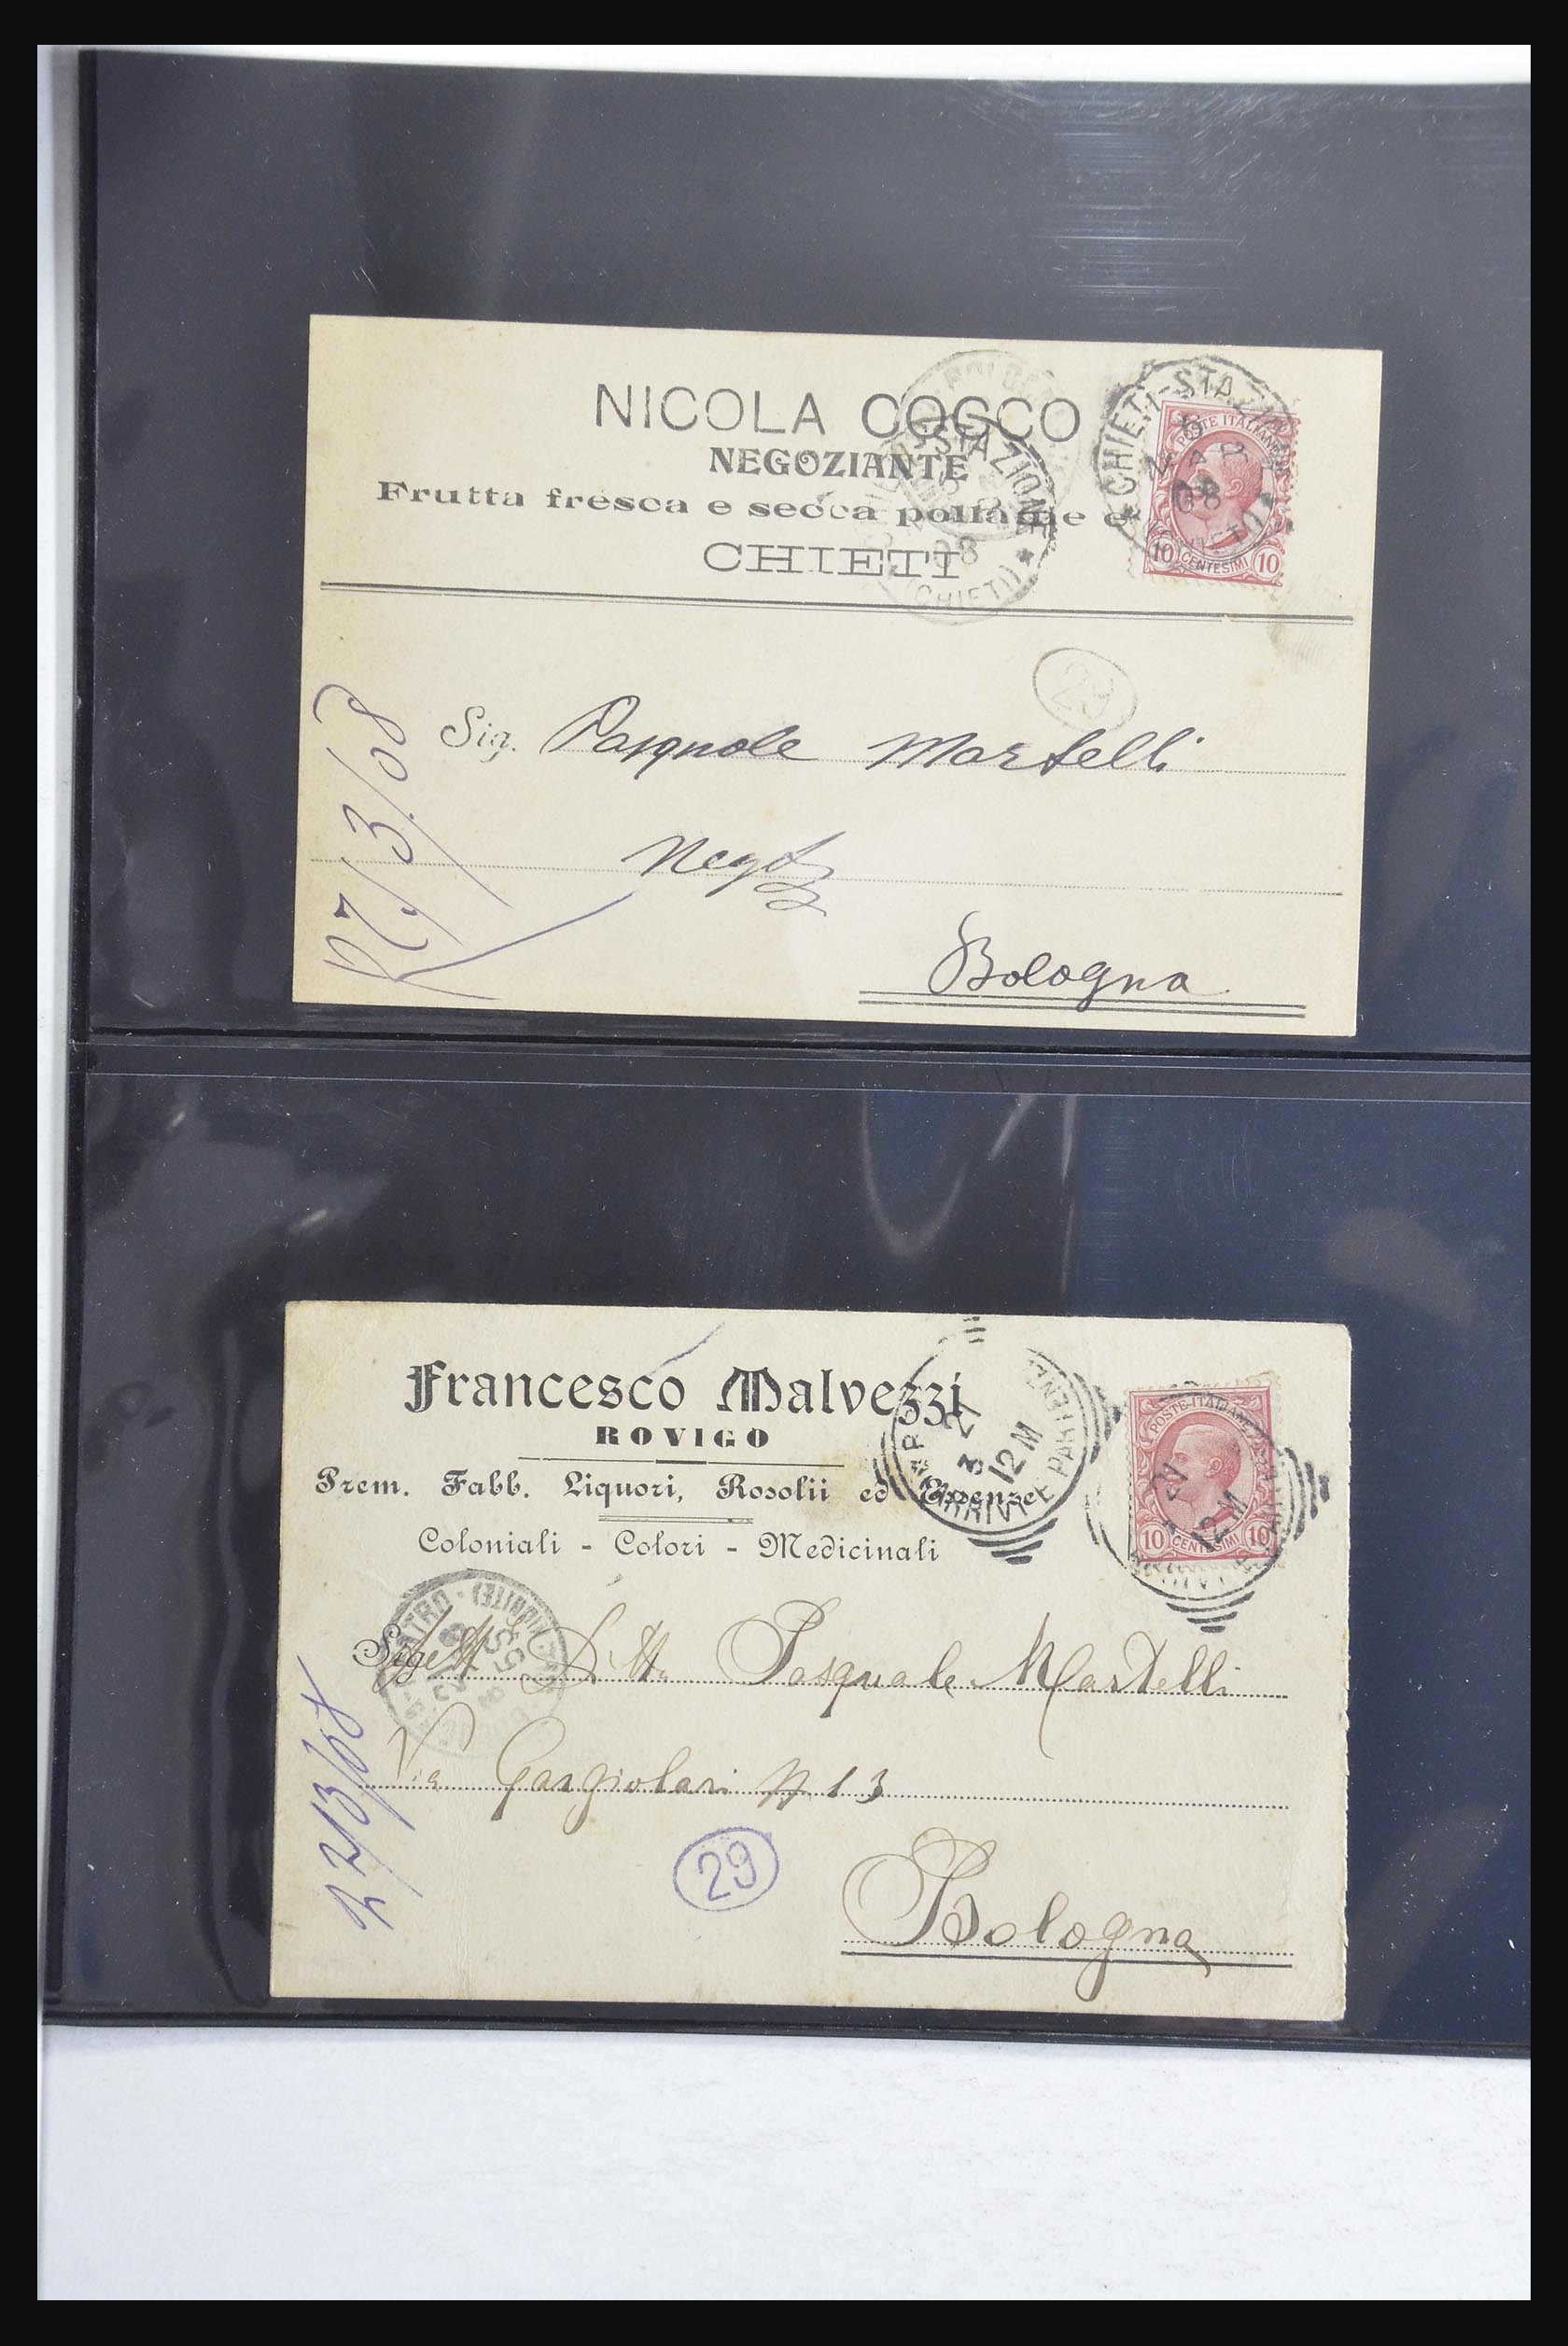 NICOLA COCCO
NEGOZIANTE
Frutta fresca e secca pollame e
CHIETI
CHIETI-STAZIONE
MAR
08
(CHIETI)
POSTE ITALIANE
10 CENTESIMI 10
STAZIONE
08
(CHIETI)
29
Sig. Pasquale Martelli
Negoz
Bologna
27/3/08
Francesco Malvezzi
ROVIGO
Prem. Fabb. Liquori, Rosolii ed Essenze
Coloniali - Colori - Medicinali
21
3
12 M
ARRIVI E PARTENZE
POSTE ITALIANE
10 CENTESIMI 10
21
12 M
Sig Ditta Pasquale Martelli
Via Gargiolari N 13
29
Bologna
27/3/08